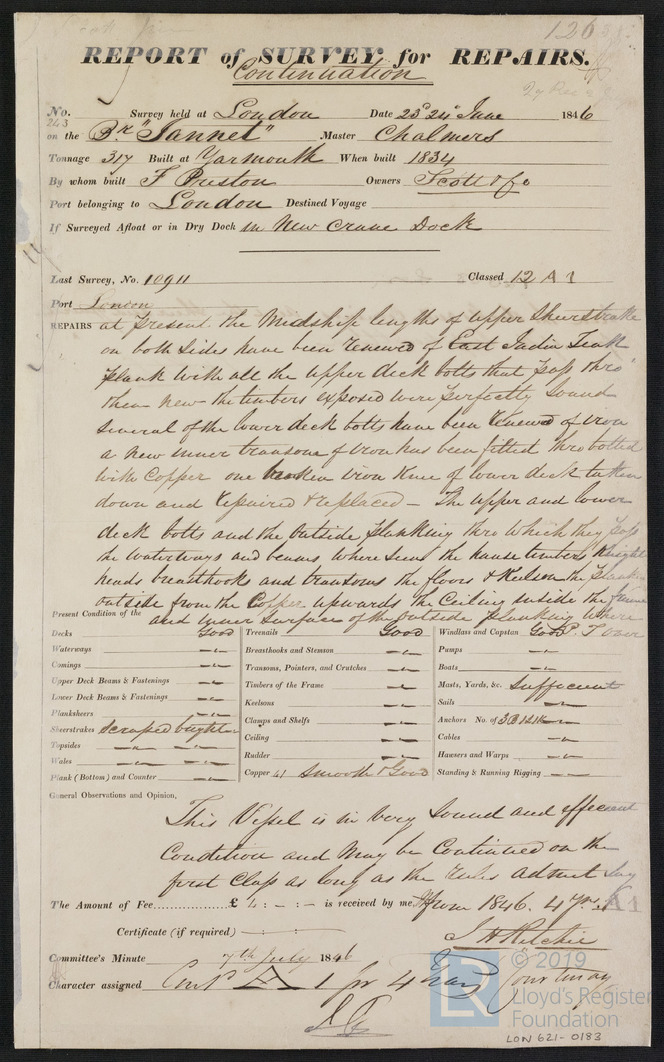 126
REPORT of SURVEY for REPAIRS.
Continuation
No. 243 Survey held at London Date 23d 24th June 1846
on the Bk "Jannet" Master Chalmers
Tonnage 317 Built at Yarmouth When built 1834
By whom built F Preston Owners Scott & Co
Port belonging to London Destined Voyage
If Surveyed Afloat or in Dry Dock in New Crane Dock
Last Survey, No. 10911 Classed 12 A 1
Port London
REPAIRS at present the Midship lengths of upper Sheerstrake
on both sides have been renewed of East India Teak
plank with all the upper deck bolts that pass thro
them new the timbers exposed were perfectly sound
several of the lower deck bolts have been renewed of iron
a new inner transom of iron has been fitted thro bolted
with Copper one broken iron knee of lower deck taken
down and repaired & replaced – The upper and lower
deck bolts and the outside planking thro which they pass
the waterways and beams where seen the hause timbers Knight
heads breasthook and transoms the floors & Keelson the plank
outside from the Copper upwards the Ceiling inside the frame
and inner surface of the outside planking where
Present Condition of the
Decks Good
Waterways
Comings
Upper Deck Beams & Fastenings
Lower Deck Beams & Fastenings
Planksheers
Sheerstrakes scraped bright
Topsides
Wales
Plank (Bottom) and Counter
Treenails Good
Breasthooks and Stemson
Transoms, Pointers, and Crutches
Timbers of the Frame
Keelsons
Clamps and Shelfs
Ceiling
Rudder
Copper 41 Smooth & Good
Windlass and Capstan Good
Pumps
Boats
Masts, Yards, &c. Sufficient
Sails
Anchors No. of 3B 1S 1K
Cables
Hausers and Warps
Standing & Running Rigging
General Observations and Opinion,
This Vessel is in very sound and efficient
Condition and may be Continued on the
first Class as long as the rules admit say
The Amount of Fee £ 1 : – : – is received by me, from 1846. 4 yrs A1
Certificate (if required)
J H Ritchie
Committee's Minute 7th July 1846
Character assigned Contd A 1 for 4 Years
© 2019
Lloyd's Register
Foundation
LR
LON 621-0183